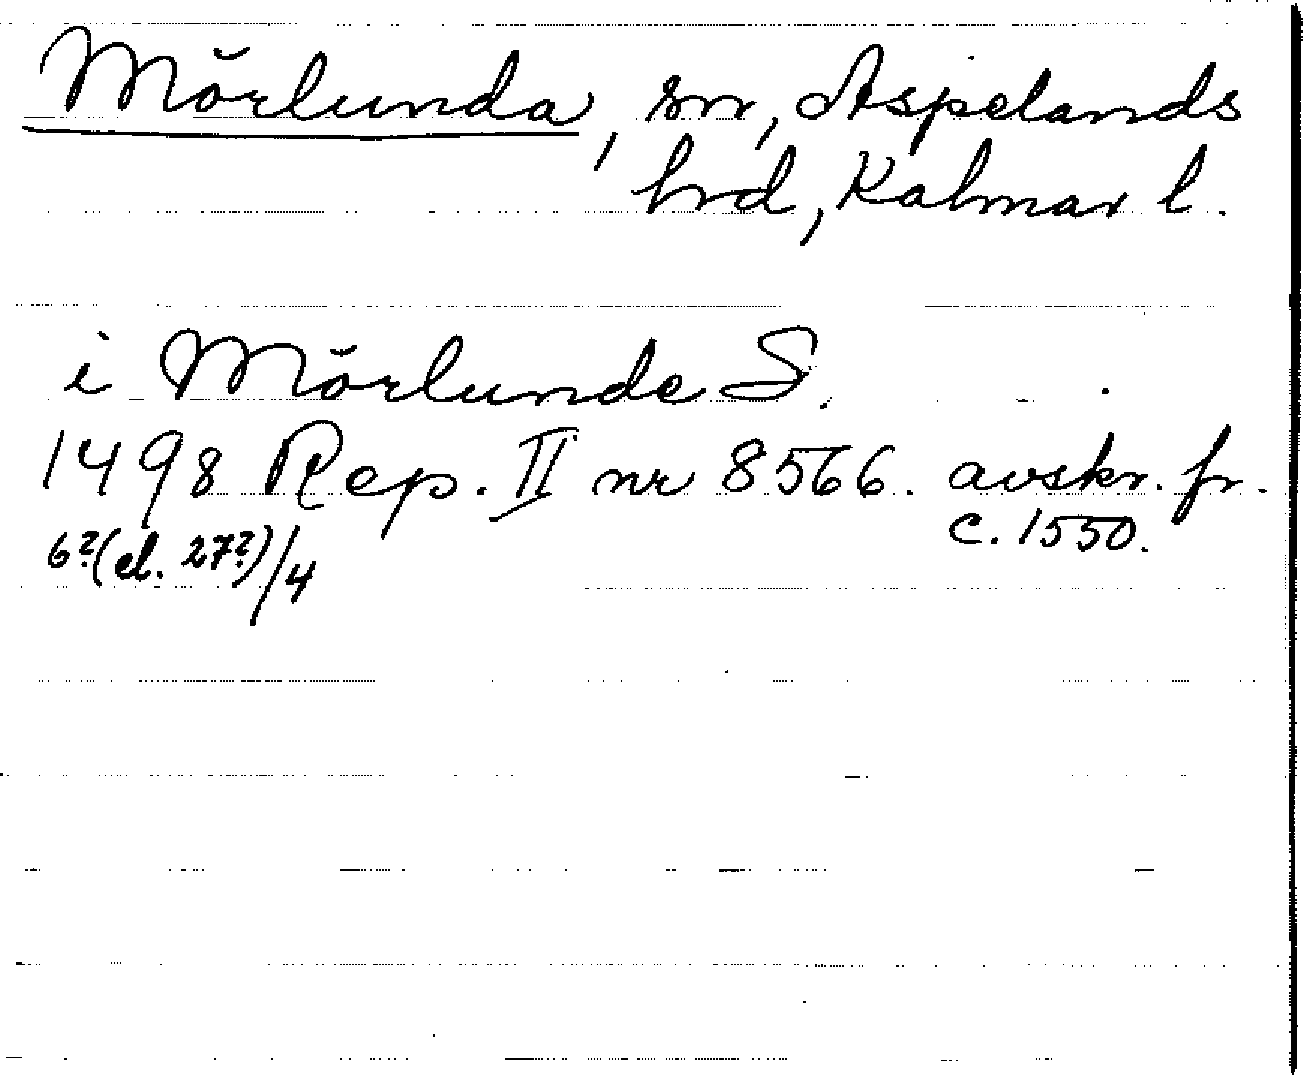 Mörlunda, sn, Aspelands
hrd, Kalmar l.
i Mörlunde S.
1498 Rep. II nr 8566. avskr. fr.
c. 1550.
6?(el. 27?)/4